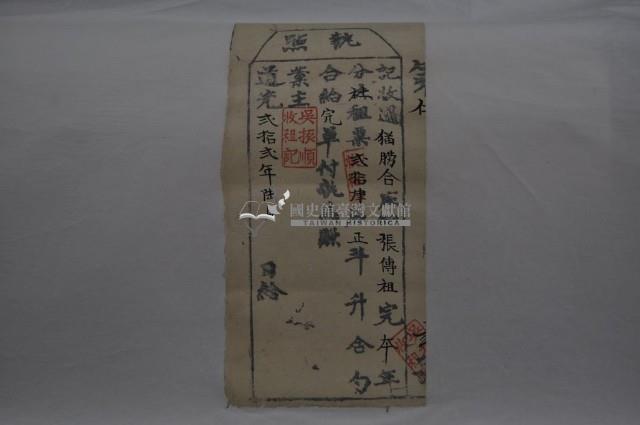 執照
記收過猫朥合庄張傳祖完本年
分社租粟貳拾肆正斗升合勺
合約完單付執照
業主吳振順收租記
道光貳拾貳年陸
日給
國史館臺灣文獻館
TAIWAN HISTORICA